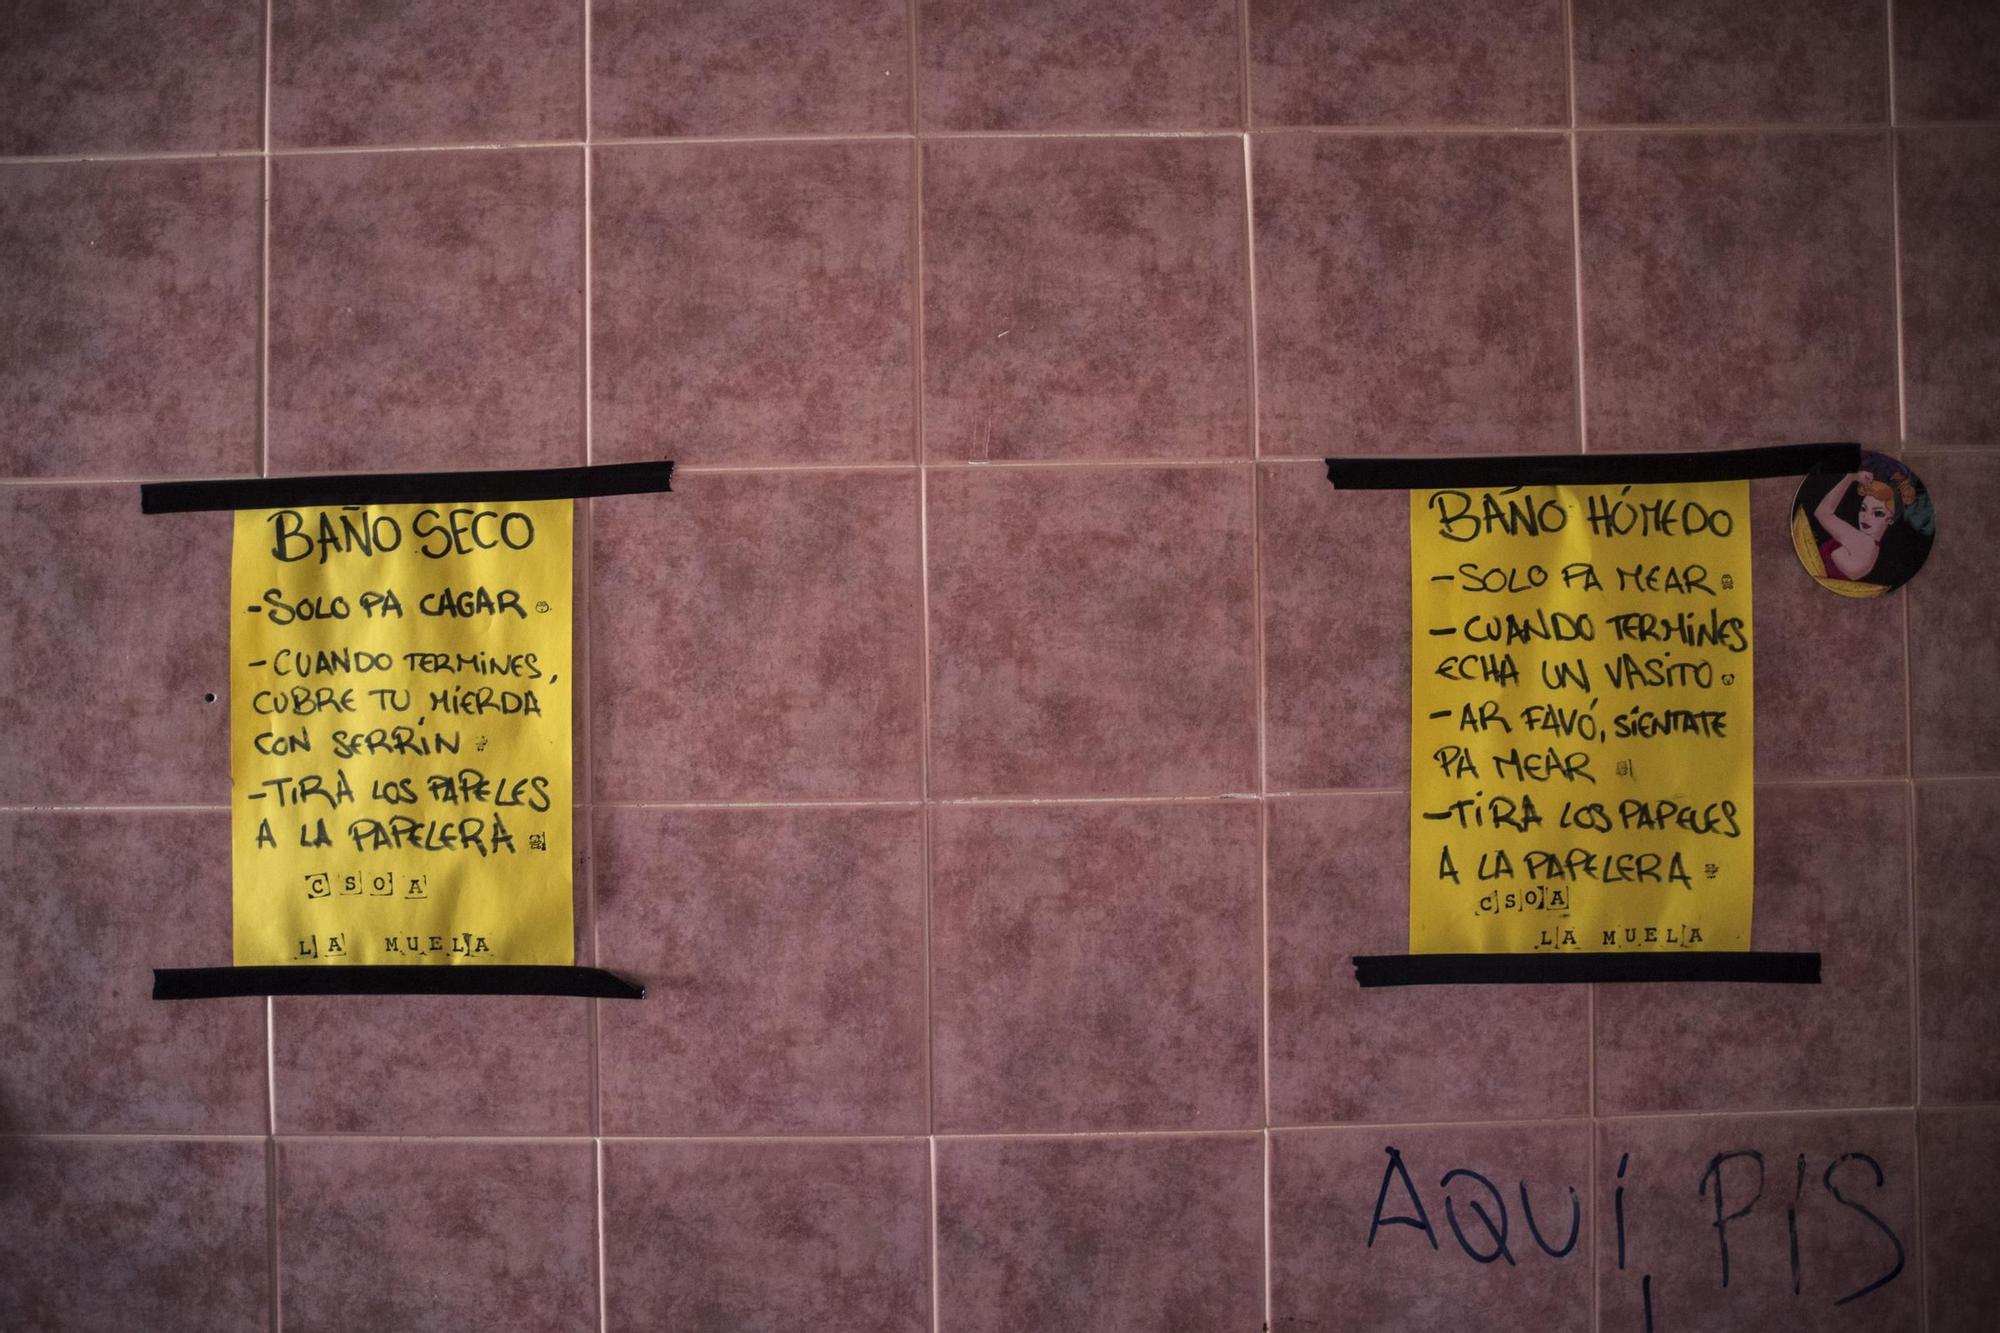 BAÑO SECO
-SOLO PA CAGAR.
-CUANDO TERMINES,
CUBRE TU MIERDA
CON SERRÍN
-TIRA LOS PAPELES
A LA PAPELERA
CSOA
LA MUELA
BAÑO HÚMEDO
-SOLO PA MEAR
-CUANDO TERMINES
ECHA UN VASITO.
-AR FAVÓ, SIENTATE
PA MEAR
-TIRA LOS PAPELES
A LA PAPELERA
CSOA
LA MUELA
AQUÍ PIS